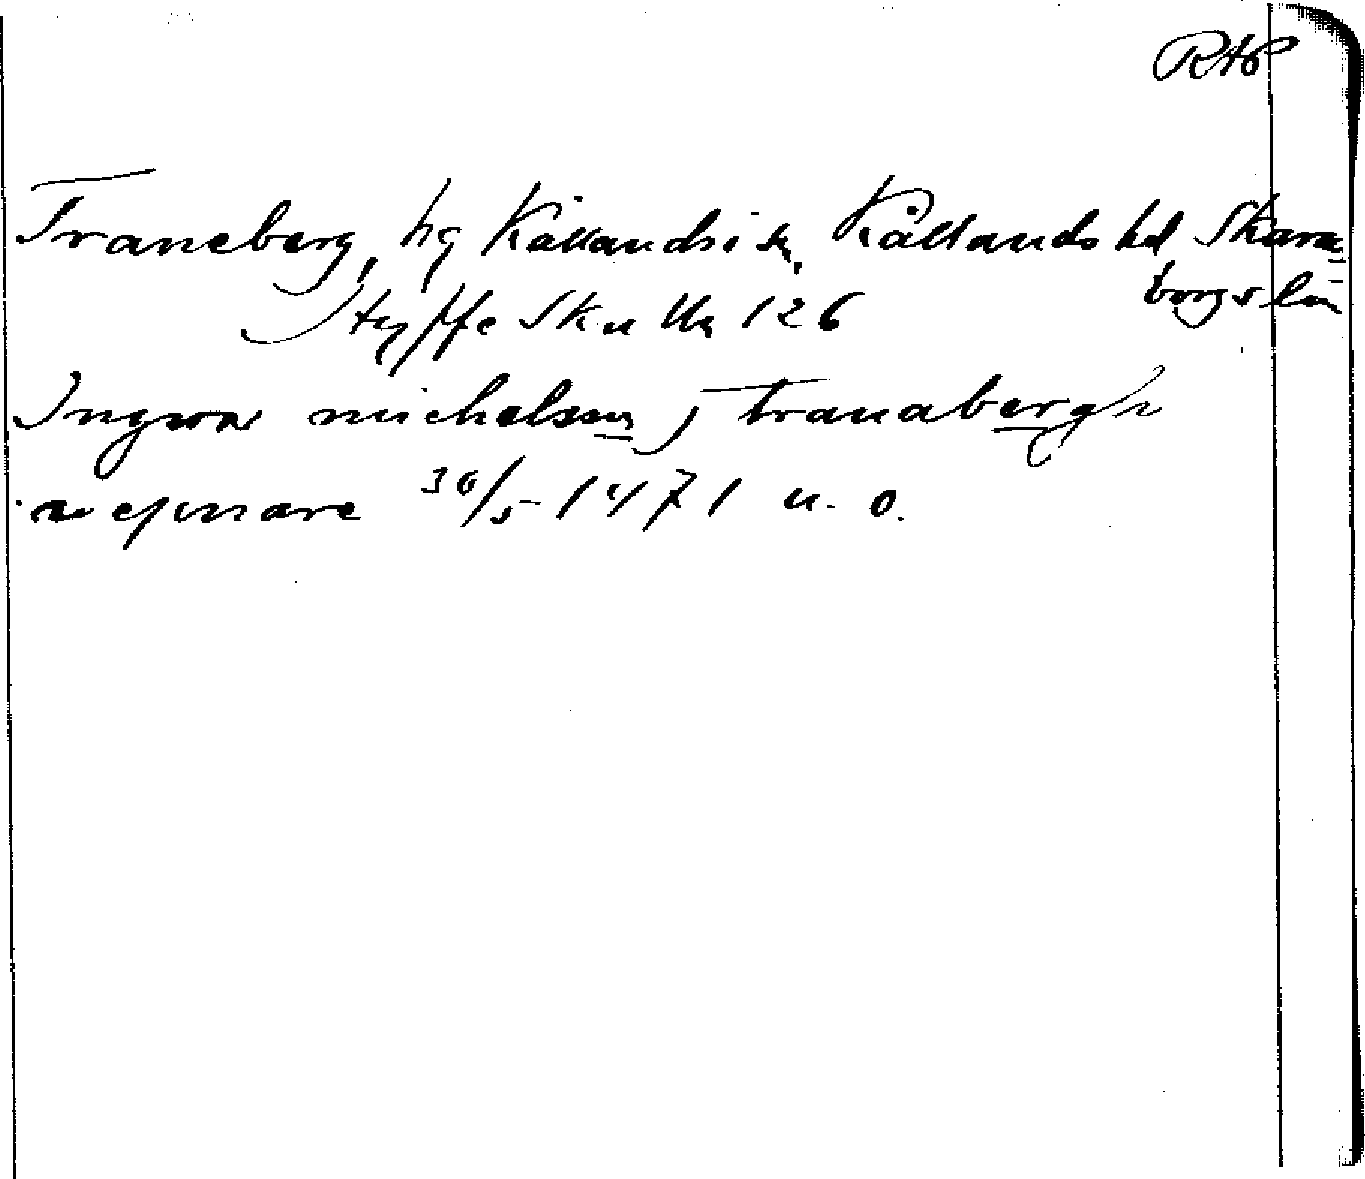 RAp
Traneberg, hg Kållandsö sn, Kållands hd Skara-
borgs län
Styffe Skutt 126
Ingwar michelson j tranaberghe
wepnare 30/5 1471 u. o.